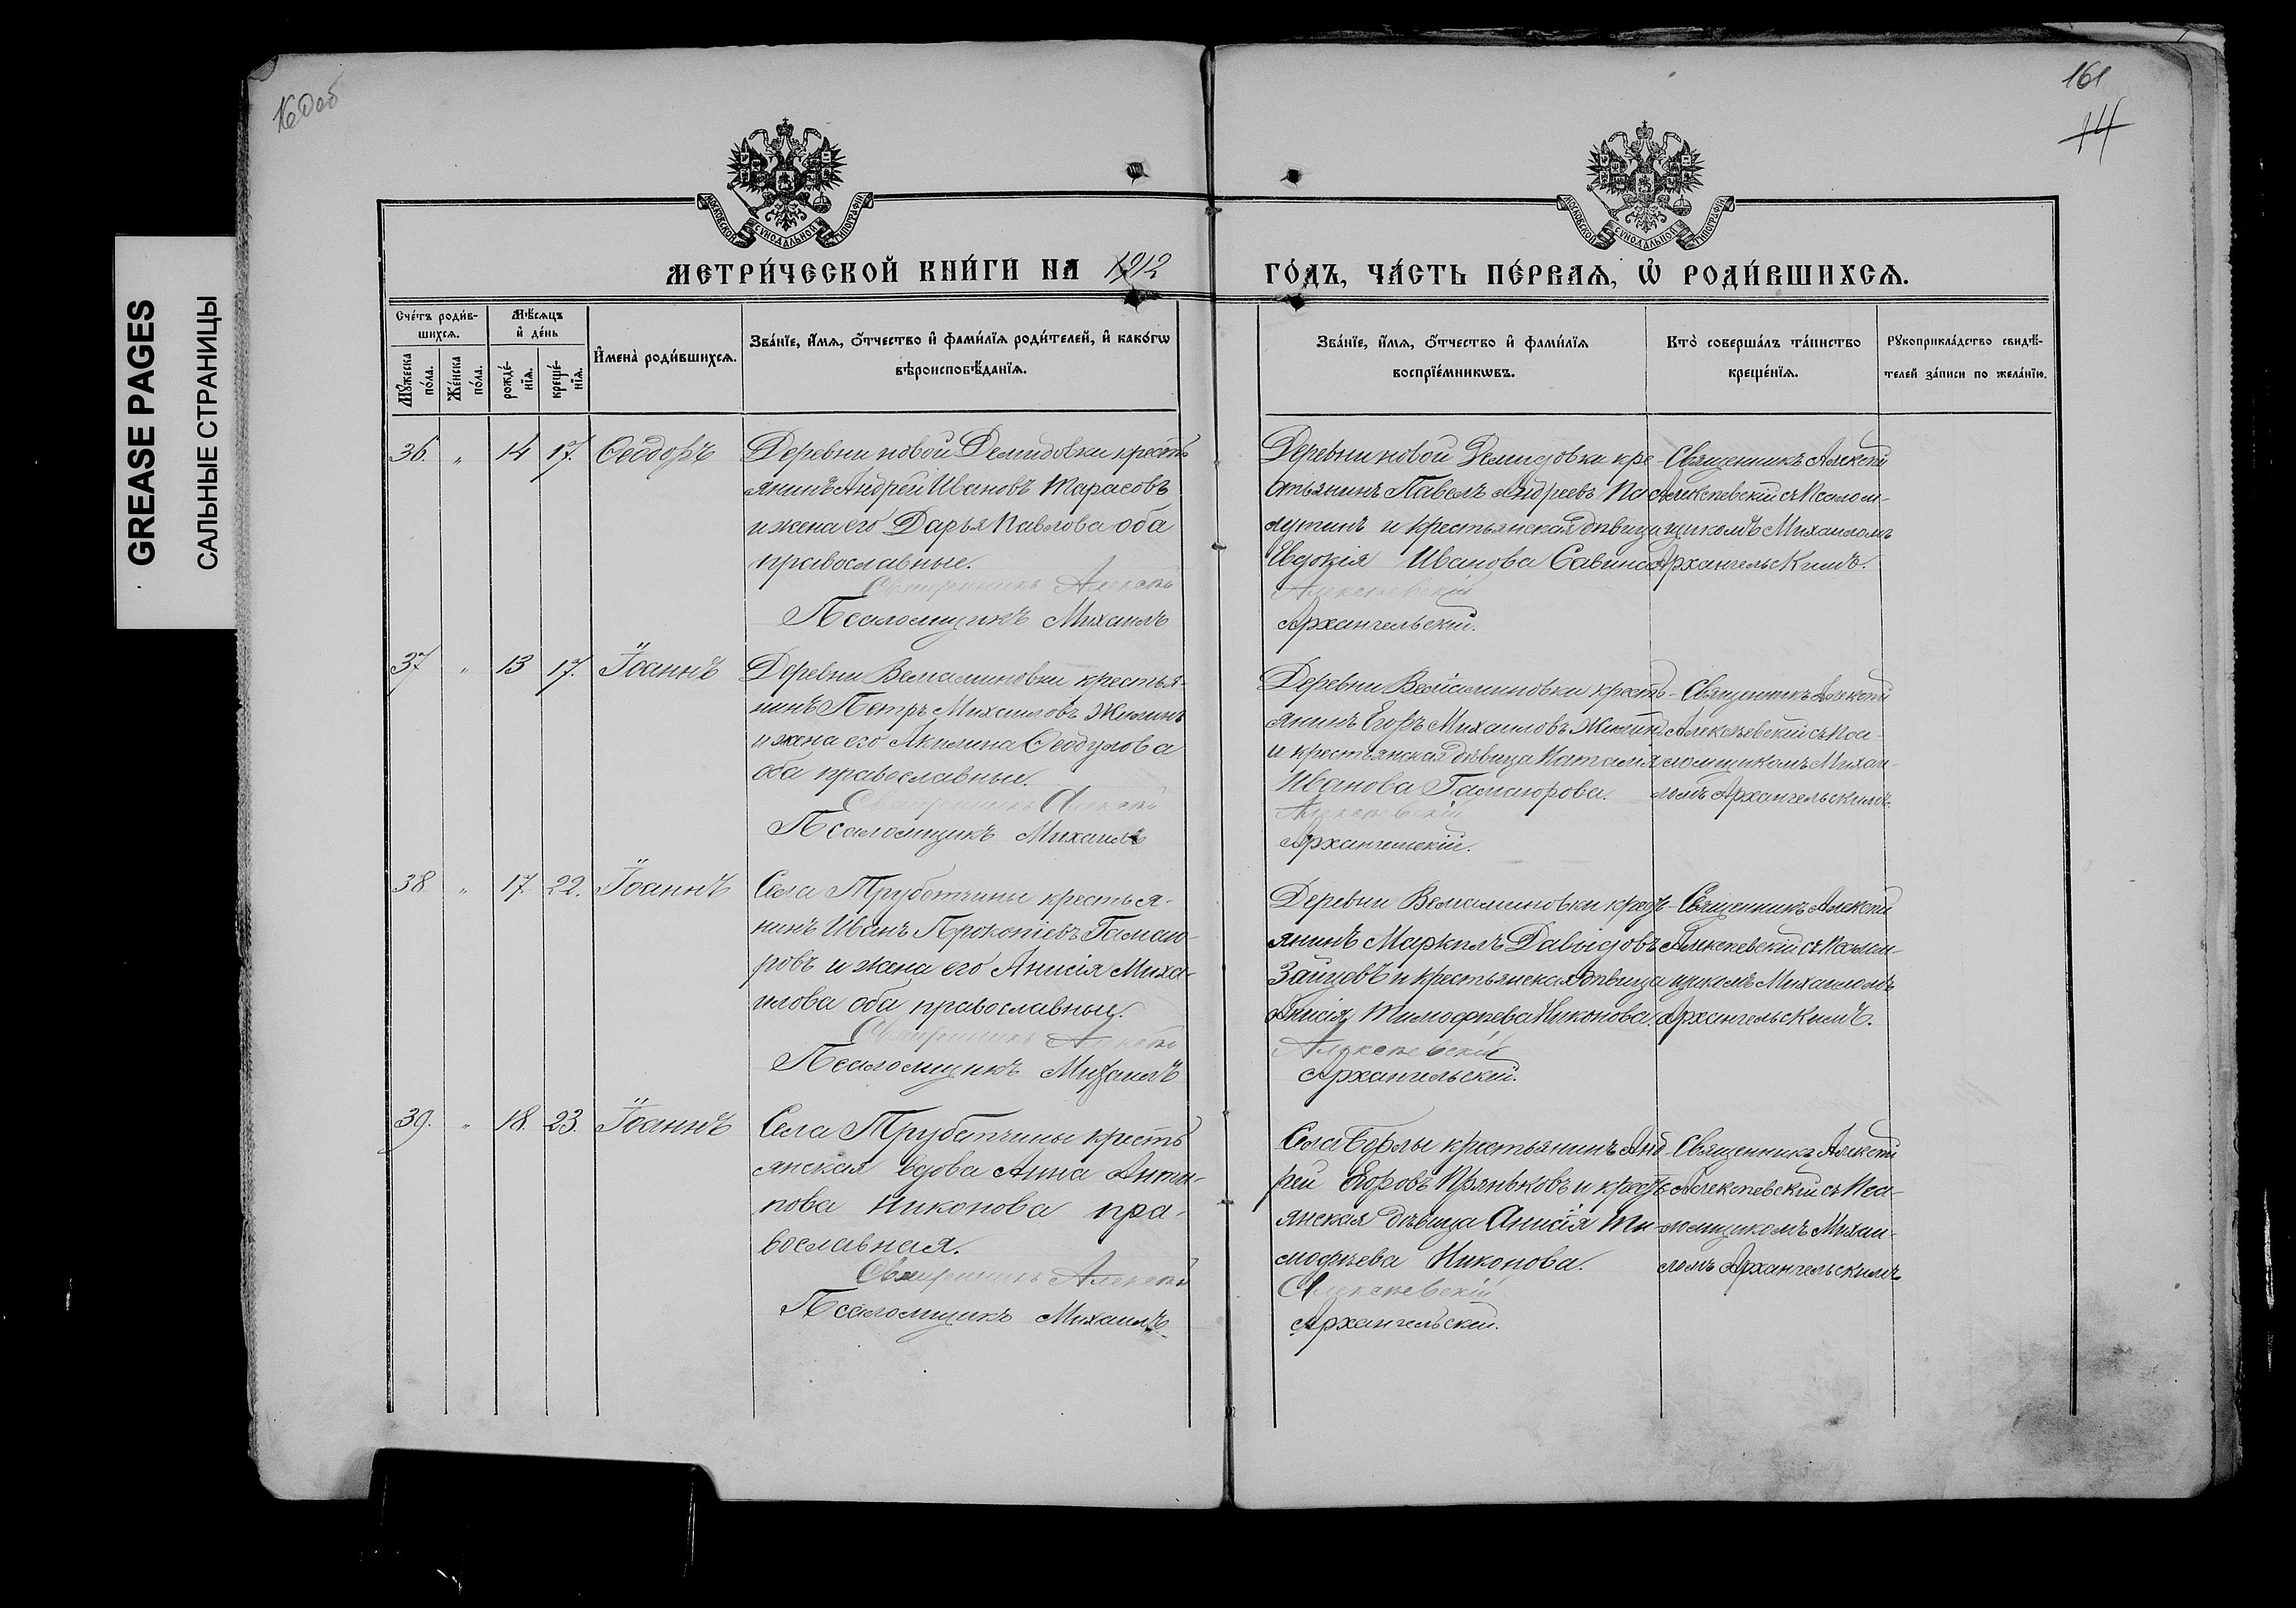 GREASE PAGES
САЛЬНЫЕ СТРАНИЦЫ
161
14
МОСКОВСКОЙ СѴНОДАЛЬНОЙ ТИПОГРАФІИ
МОСКОВСКОЙ СѴНОДАЛЬНОЙ ТИПОГРАФІИ
МЕТРИ́ЧЕСКОЙ КНИ́ГИ НА 1912
ГО́ДЪ, ЧА́СТЬ ПЕ́РВАѦ, Ѡ҆ РОДИ́ВШИХСѦ.
Сче́тъ роди́в-
шихсѧ.
Мꙋ́жеска
по́ла.
Же́нска
по́ла.
Мѣ́сѧцъ
и҆ де́нь
рожде́-
нїѧ.
креще́-
нїѧ.
И҆мена̀ роди́вшихсѧ.
Зва́нїе, и҆́мѧ, ѻ҆́тчество и҆ фами́лїѧ роди́телей, и҆ како́гѡ
вѣроисповѣ́данїѧ.
Зва́нїе, и҆́мѧ, ѻ҆́тчество и҆ фами́лїѧ
воспрїе́мникѡвъ.
Кто̀ соверша́лъ та́инство
креще́нїѧ.
Рꙋкоприкла́дство свидѣ́-
телей за́писи по жела́нїю.
36. " 14 17. Ѳеодоръ
Деревни новой Демидовки кресть
янинъ Андрей Ивановъ Тарасовъ
и жена его Дарья Павлова оба
православные.
Священникъ Алексѣй
Псаломщикъ Михаилъ
Деревни новой Демидовки кре-
стьянинъ Павелъ Андреевъ Па
лутинъ и крестьянская дѣвица
Евдокія Иванова Савина
Алексѣевскій
Архангельскій.
Священникъ Алексѣй
Алексѣевскій съ Псалом-
щикомъ Михаиломъ
Архангельскимъ.
37 " 13 17. Іоаннъ
Деревни Вельяминовки крестья-
нинъ Петръ Михаиловъ Жилинъ
и жена его Акилина Ѳеодулова
оба православные.
Священникъ Алексѣй
Псаломщикъ Михаилъ
Деревни Вельяминовки кресть-
янинъ Егоръ Михаиловъ Жилинъ
и крестьянская дѣвица Наталія
Иванова Гамаюрова.
Алексѣевскій
Архангельскій.
Священникъ Алексѣй
Алексѣевскій съ Пса-
ломщикомъ Михаи-
ломъ Архангельскимъ.
38. " 17. 22. Іоаннъ
Села Трубетчины крестья-
нинъ Иванъ Прокопіевъ Гамаю-
ровъ и жена его Анисія Миха-
илова оба православные.
Священникъ Алексѣй
Псаломщикъ Михаилъ
Деревни Вельяминовки кресть-
янинъ Маркелъ Давыдовъ
Зайцевъ и крестьянская дѣвица
Анисія Тимофѣева Никонова.
Алексѣевскій
Архангельскій.
Священникъ Алексѣй
Алексѣевскій съ Псалом-
щикомъ Михаиломъ
Архангельскимъ.
39. " 18. 23. Іоаннъ
Села Трубетчины кресть
янская вдова Анна Анти-
пова Никонова пра-
вославная.
Священникъ Алексѣй
Псаломщикъ Михаилъ
Села Ѳурлы крестьянинъ Анд-
рей Егоровъ Пряньковъ и кресть
янская дѣвица Анисія Ти-
мофѣева Никонова.
Алексѣевскій
Архангельскій.
Священникъ Алексѣй
Алексѣевскій съ Пса-
ломщикомъ Михаи-
ломъ Архангельскимъ